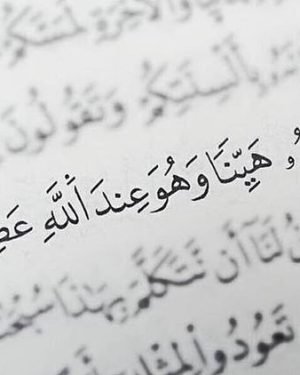 وَٱلْءَاخِرَةِ لَمَسَّكُمْ
بِأَلْسِنَتِكُمْ وَتَقُولُونَ
هَيِّنًا وَهُوَ عِندَ ٱللَّهِ عَظِ
لَنَآ أَن نَّتَكَلَّمَ بِهَٰذَا سُبْحَٰ
تَعُودُوا۟ لِمِثْلِهِۦٓ